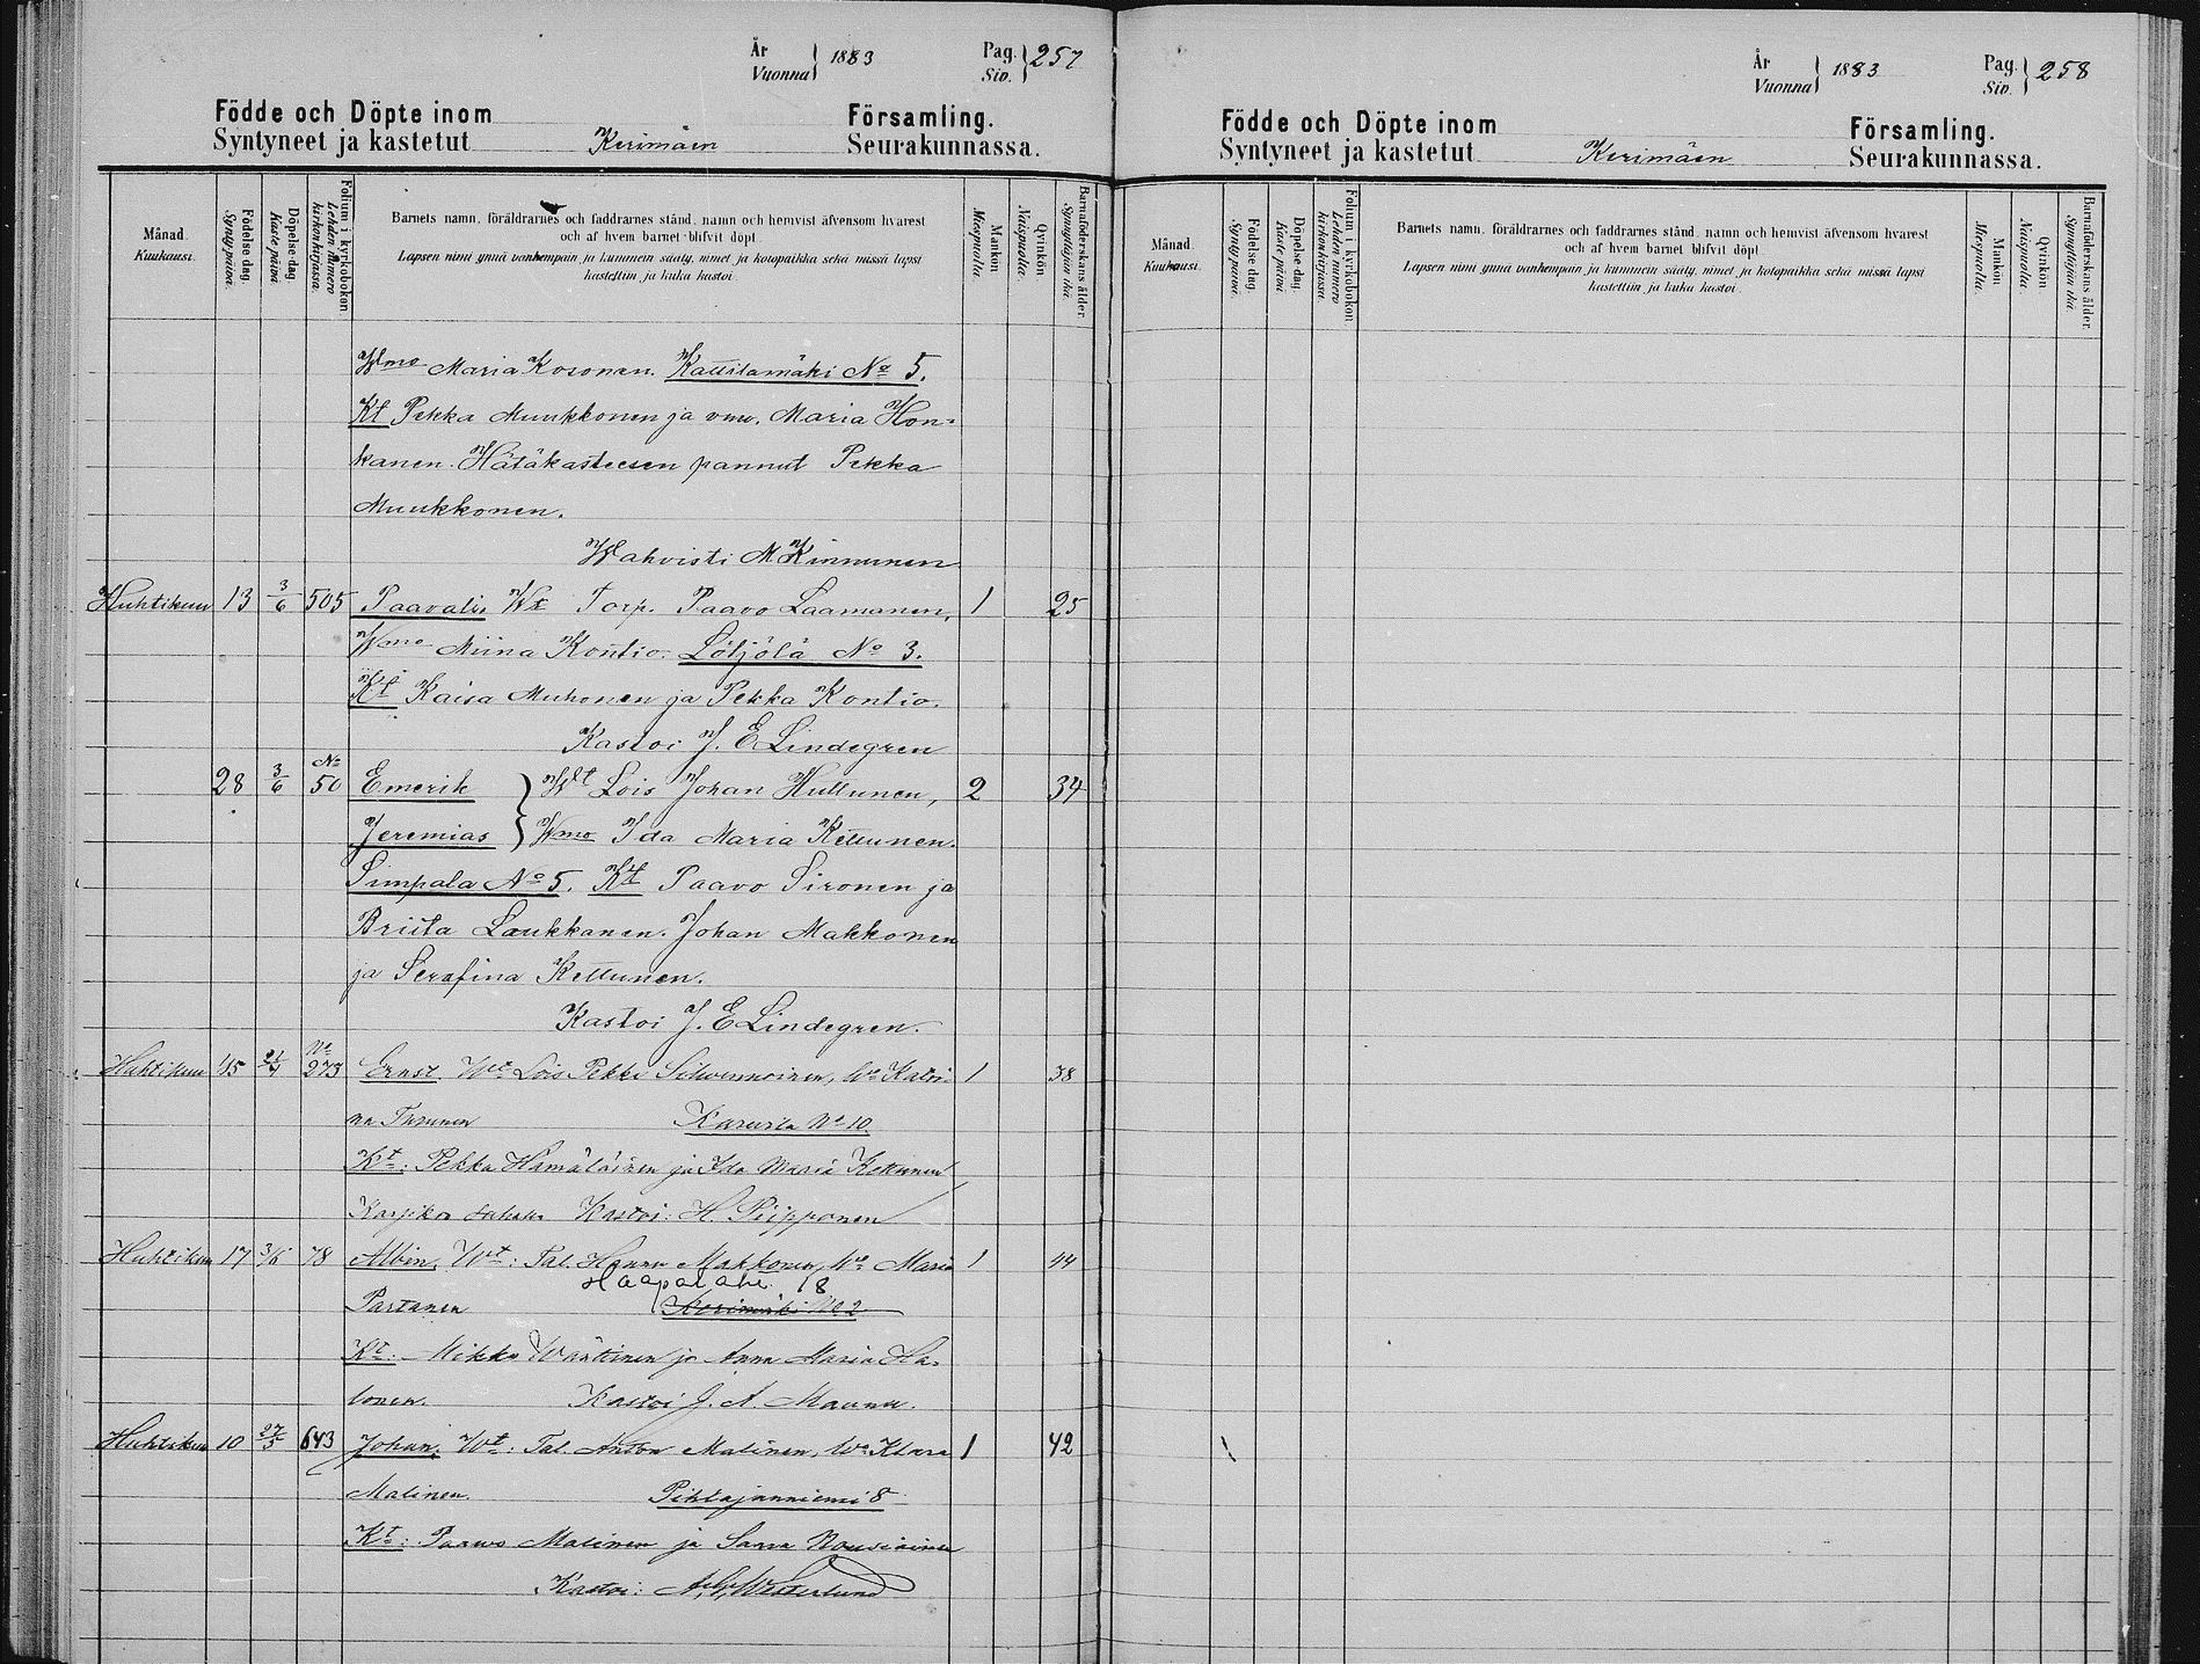 År
Vuonna 1883
Pag.
Siv. 257
Födde och Döpte inom Församling.
Syntyneet ja kastetut Kerimäen Seurakunnassa.
Månad.
Kuukausi.
Födelse dag.
Synty päivä.
Döpelse dag.
Kaste päivä.
Folium i kyrkoboken
Lehden numero
kirkonkirjassa.
Barnets namn, föräldrarnes och faddrarnes stånd, namn och hemvist äfvensom hvarest
och af hvem barnet blifvit döpt.
Lapsen nimi ynnä vanhempain ja kummein sääty, nimet ja kotopaikka sekä missä lapsi
kastettiin ja kuka kastoi.
Mankön
Miespuolia.
Qvinkön
Naispuolia.
Barnaföderskans ålder.
Synnyttäjän ikä.
Wmo Maria Kosonen. Kattilamäki No 5.
Kt Pekka Muukkonen ja vmo. Maria Hon-
kanen. Hätäkasteesen pannut Pekka
Muukkonen.
Wahvisti M Kinnunen
Huhtikuu 13 3/6 505 Paavali. Wt Torp. Paavo Laamanen, 1 25
Wmo Miina Kontio. Lötjölä No 3.
Kt Kaisa Muhonen ja Pekka Kontio.
Kastoi J. E Lindegren
28 3/6 No 50 Emerik } Wt Lois Johan Huttunen, 2 34
Jeremias } Wmo Ida Maria Kettunen.
Simpala No 5. Kt Paavo Sironen ja
Briita Laukkanen. Johan Makkonen
ja Serafina Kettunen.
Kastoi J. E Lindegren.
Huhtikuu 15 21/4 No 273 Ernst. Wt Lois Pekka Silvennoinen, Wo Katri- 1 38
na Turunen Karvila No 10.
Kt: Pekka Hämäläinen ja Ida Maria Kettunen
Kastoi: H. Piipponen
Huhtikuu 17 3/6 78 Albin, Wt: Tal. Hannu Makkonen, Wo Maria 1 44
Haapalahi. 18
Partanen Kerimäki No 2
Kt: Mikko Wänttinen ja Anna Maria Ha-
lonen. Kastoi J. A. Maunu.
Huhtikuu 10 27/5 643 Johan, Wt: Tal. Anton Malinen, Wo Klara 1 42
Malinen. Pihlajaniemi 8
Kt: Paavo Malinen ja Saara Nousiainen
Kastoi: A. G. Westerlund
År
Vuonna 1883
Pag.
Siv. 258
Födde och Döpte inom Församling.
Syntyneet ja kastetut Kerimäen Seurakunnassa.
Månad.
Kuukausi.
Födelse dag.
Synty päivä.
Döpelse dag.
Kaste päivä.
Folium i kyrkoboken
Lehden numero
kirkonkirjassa.
Barnets namn, föräldrarnes och faddrarnes stånd, namn och hemvist äfvensom hvarest
och af hvem barnet blifvit döpt.
Lapsen nimi ynnä vanhempain ja kummein sääty, nimet ja kotopaikka sekä missä lapsi
kastettiin ja kuka kastoi.
Mankön
Miespuolia.
Qvinkön
Naispuolia.
Barnaföderskans ålder.
Synnyttäjän ikä.